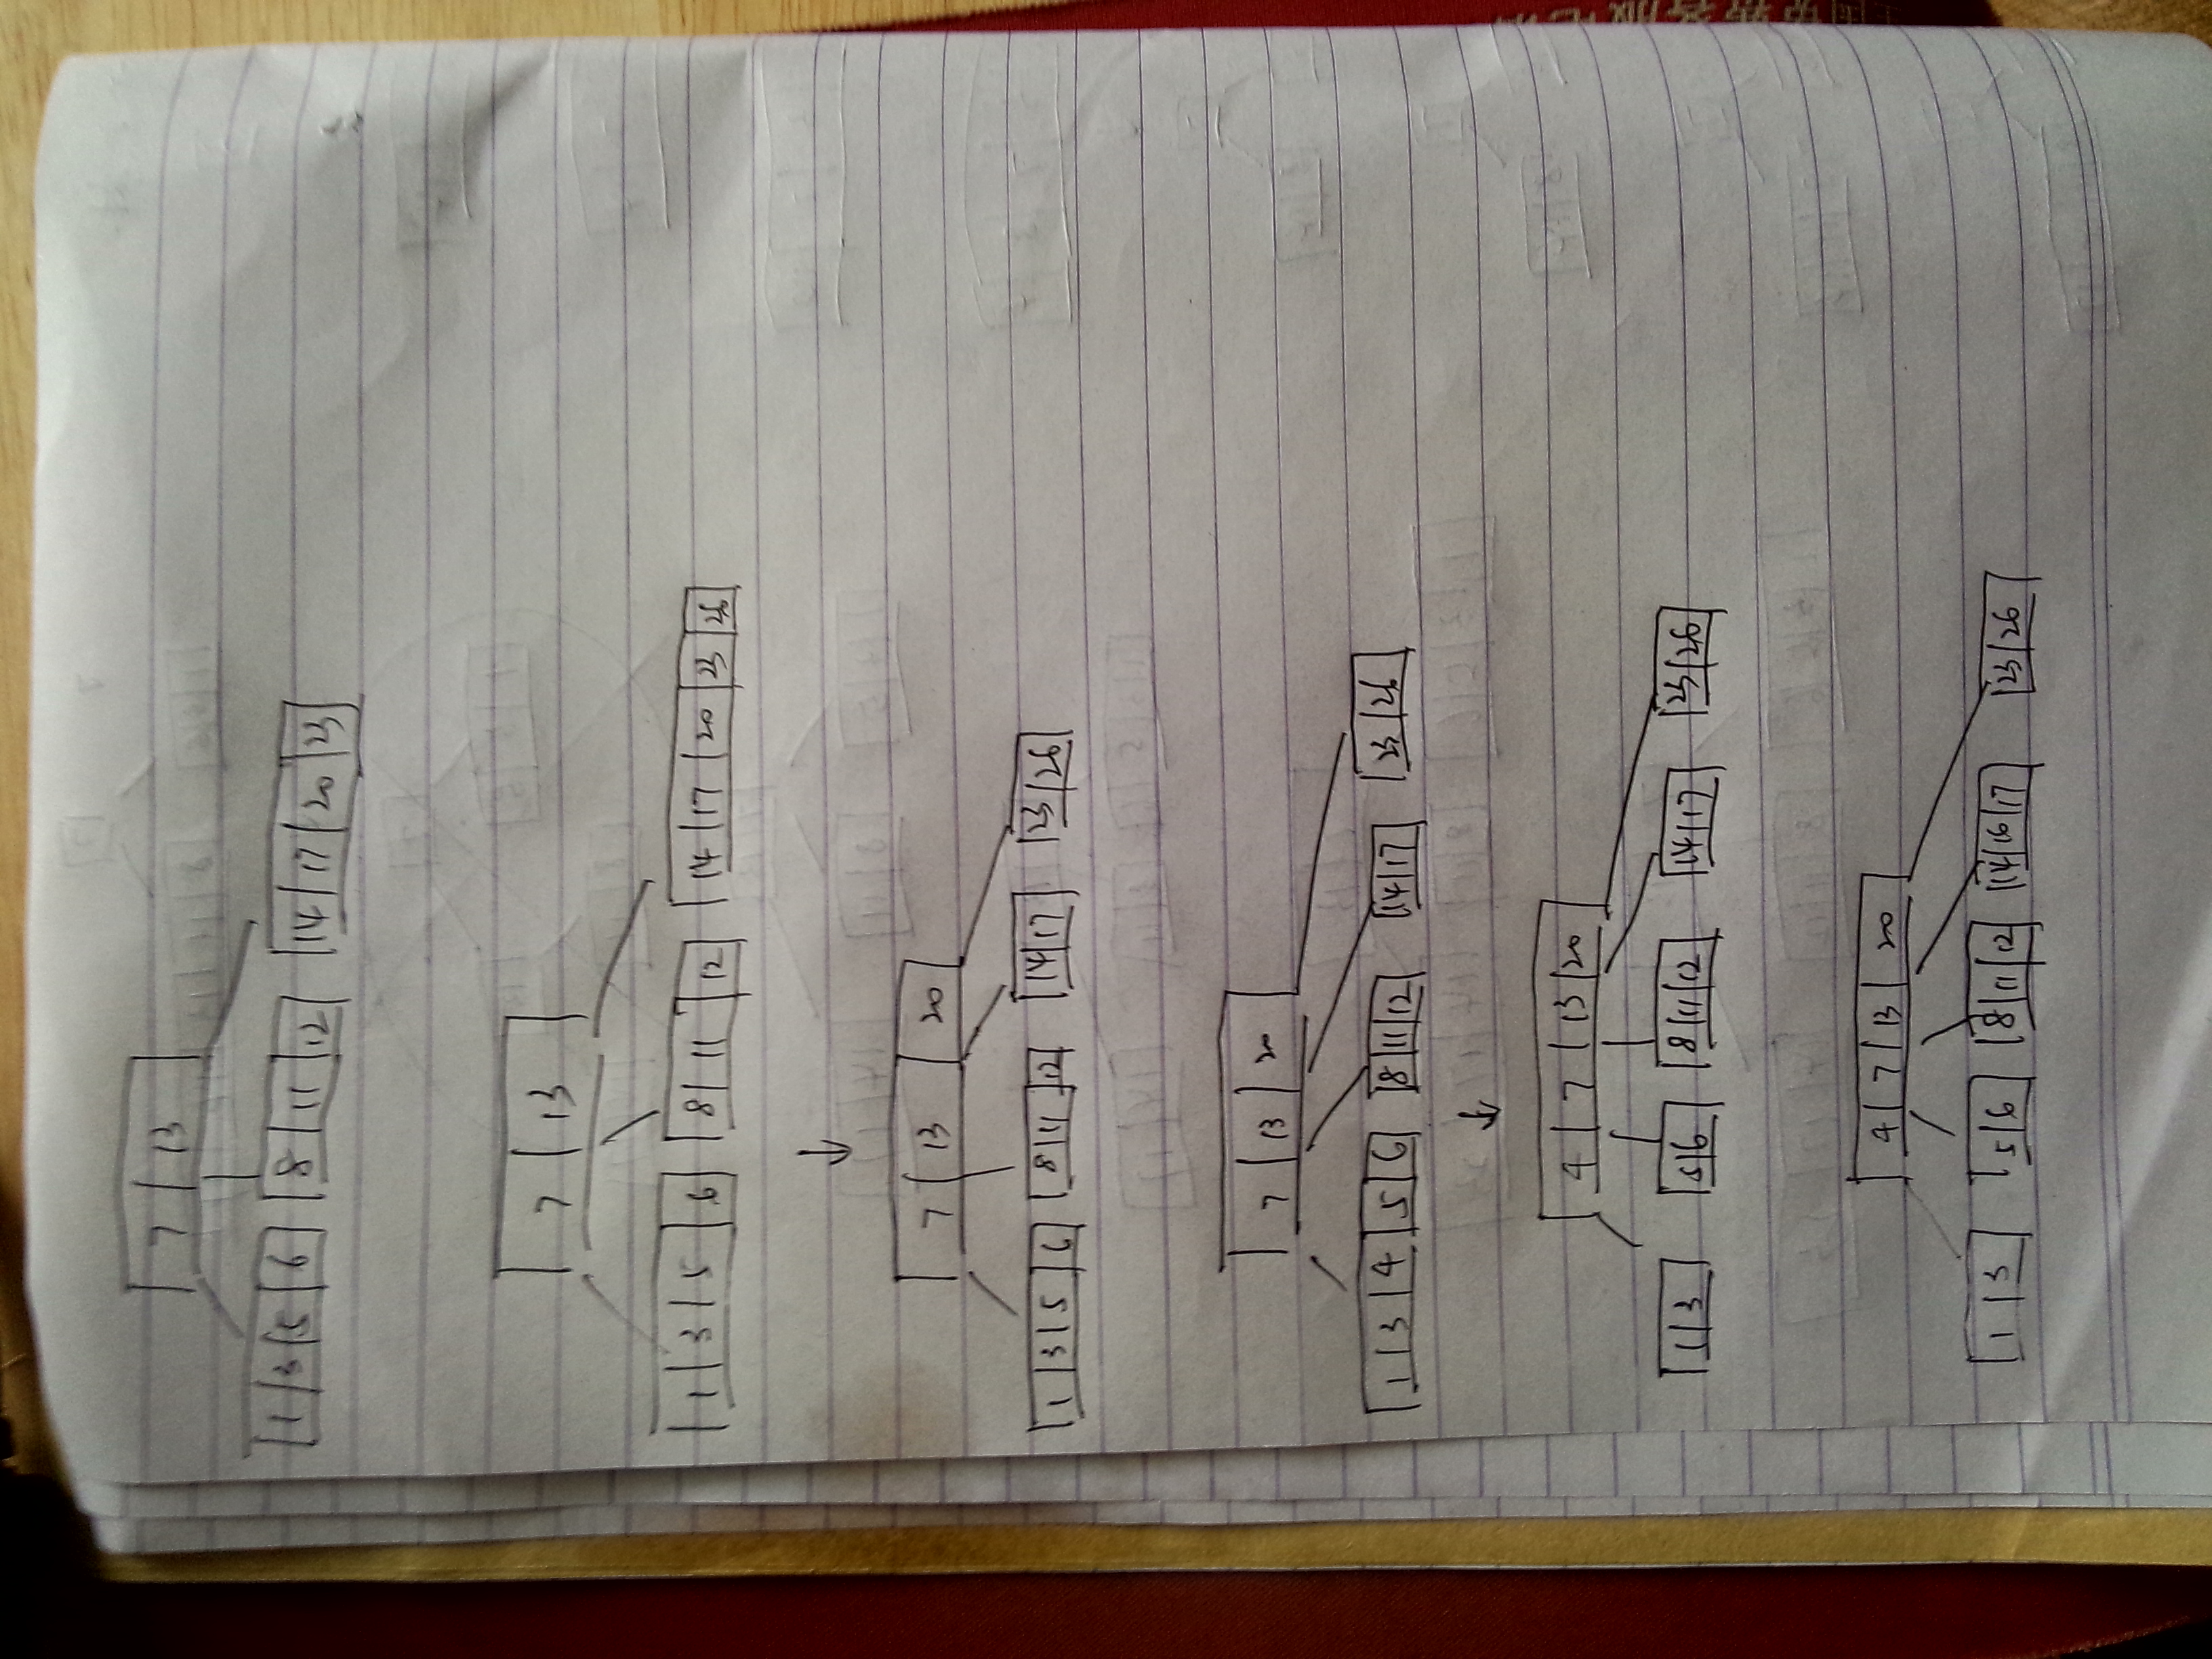 7 | 13
1 | 3 | 5 | 6   8 | 11 | 12   14 | 17 | 20 | 23
7 | 13
1 | 3 | 5 | 6   8 | 11 | 12   14 | 17 | 20 | 23 | 26
↓
7 | 13 | 20
1 | 3 | 5 | 6   8 | 11 | 12   14 | 17   23 | 26
7 | 13 | 20
1 | 3 | 4 | 5 | 6   8 | 11 | 12   14 | 17   23 | 26
↓
4 | 7 | 13 | 20
1 | 3   5 | 6   8 | 11 | 12   14 | 17   23 | 26
4 | 7 | 13 | 20
1 | 3   5 | 6   8 | 11 | 12   14 | 16 | 17   23 | 26